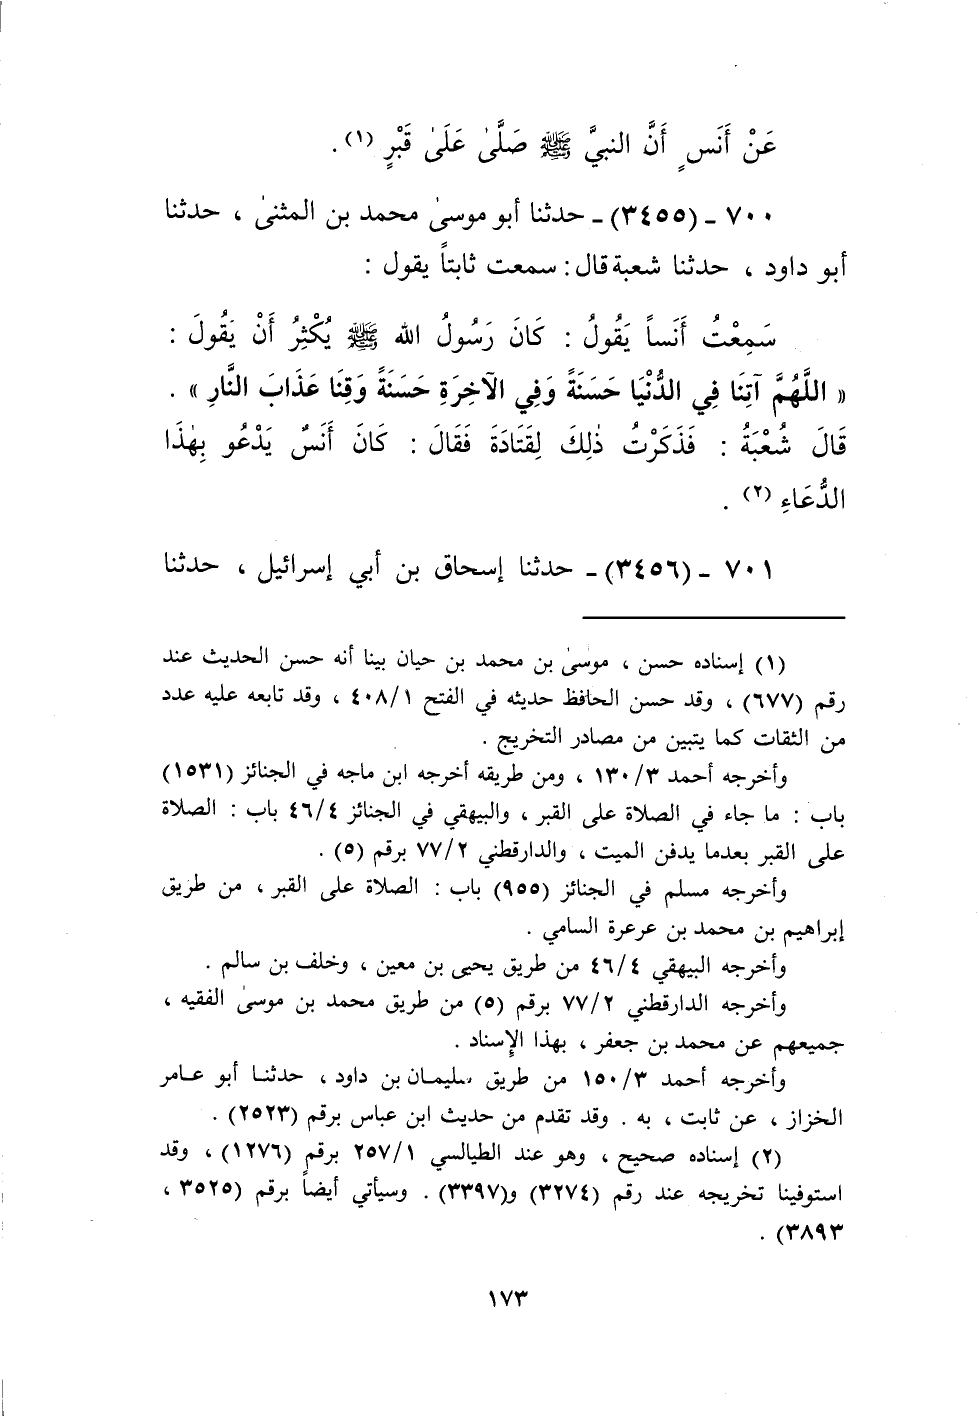 عَنْ أَنَسٍ أَنَّ النبيَّ ﷺ صَلَّىٰ عَلَىٰ قَبْرٍ (١) .
٧٠٠ ـ (٣٤٥٥) ـ حدثنا أبو موسىٰ محمد بن المثنىٰ ، حدثنا
أبو داود ، حدثنا شعبة قال : سمعت ثابتاً يقول :
سَمِعْتُ أَنَساً يَقُولُ : كَانَ رَسُولُ الله ﷺ يُكْثِرُ أَنْ يَقُولَ :
« اللَّهُمَّ آتِنَا فِي الدُّنْيَا حَسَنَةً وَفِي الآخِرَةِ حَسَنَةً وَقِنَا عَذَابَ النَّارِ » .
قَالَ شُعْبَةُ : فَذَكَرْتُ ذٰلِكَ لِقَتَادَةَ فَقَالَ : كَانَ أَنَسٌ يَدْعُو بِهٰذَا
الدُّعَاءِ (٢) .
٧٠١ ـ (٣٤٥٦) ـ حدثنا إسحاق بن أبي إسرائيل ، حدثنا
(١) إسناده حسن ، موسىٰ بن محمد بن حيان بينا أنه حسن الحديث عند
رقم (٦٧٧) ، وقد حسن الحافظ حديثه في الفتح ٤٠٨/١ ، وقد تابعه عليه عدد
من الثقات كما يتبين من مصادر التخريج .
وأخرجه أحمد ١٣٠/٣ ، ومن طريقه أخرجه ابن ماجه في الجنائز (١٥٣١)
باب : ما جاء في الصلاة على القبر ، والبيهقي في الجنائز ٤٦/٤ باب : الصلاة
على القبر بعدما يدفن الميت ، والدارقطني ٧٧/٢ برقم (٥) .
وأخرجه مسلم في الجنائز (٩٥٥) باب : الصلاة على القبر ، من طريق
إبراهيم بن محمد بن عرعرة السامي .
وأخرجه البيهقي ٤٦/٤ من طريق يحيى بن معين ، وخلف بن سالم .
وأخرجه الدارقطني ٧٧/٢ برقم (٥) من طريق محمد بن موسىٰ الفقيه ،
جميعهم عن محمد بن جعفر ، بهذا الإسناد .
وأخرجه أحمد ١٥٠/٣ من طريق سليمان بن داود ، حدثنا أبو عامر
الخزاز ، عن ثابت ، به . وقد تقدم من حديث ابن عباس برقم (٢٥٢٣) .
(٢) إسناده صحيح ، وهو عند الطيالسي ٢٥٧/١ برقم (١٢٧٦) ، وقد
استوفينا تخريجه عند رقم (٣٢٧٤) و(٣٣٩٧) . وسيأتي أيضاً برقم (٣٥٢٥ ،
٣٨٩٣) .
١٧٣